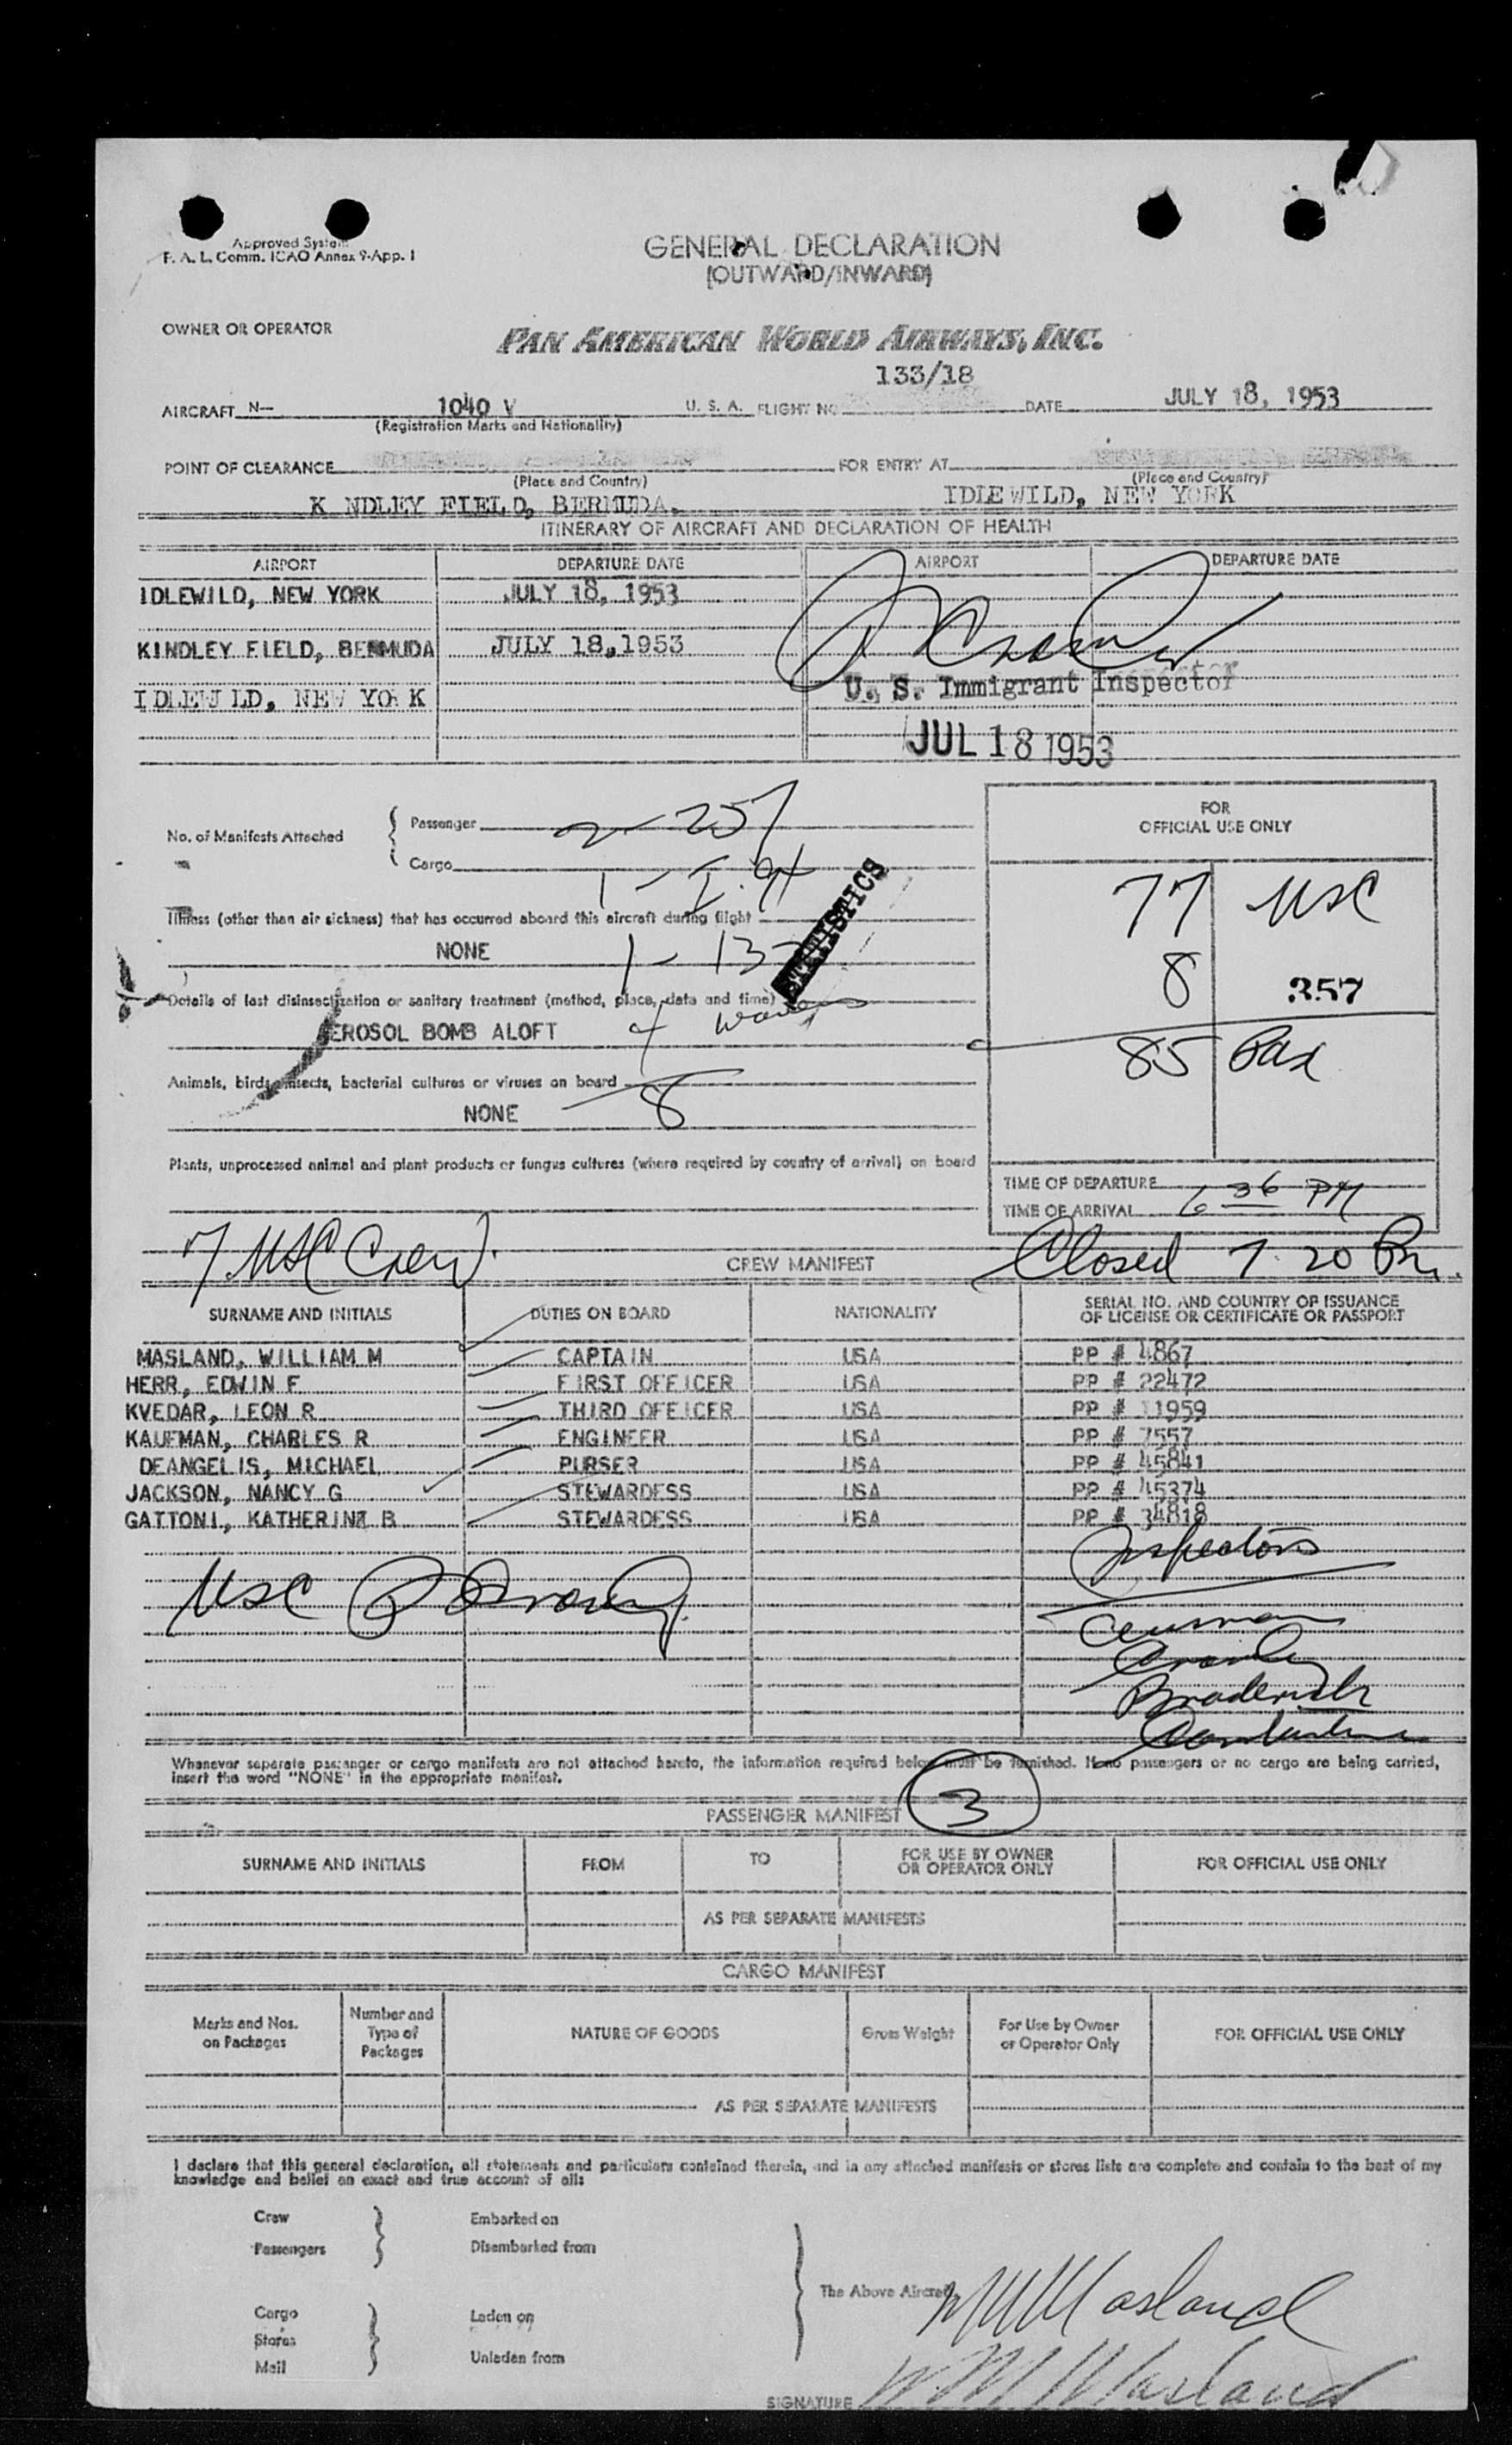 Approved System
F. A. L. Comm. ICAO Annex 9-App. 1
GENERAL DECLARATION
(OUTWARD/INWARD)
OWNER OR OPERATOR
PAN AMERICAN WORLD AIRWAYS, INC.
133/18
AIRCRAFT N— 1040 V U. S. A. FLIGHT NO DATE JULY 18, 1953
(Registration Marks and Nationality)
POINT OF CLEARANCE FOR ENTRY AT
(Place and Country) (Place and Country)
K NDLEY FIELD, BERMUDA. IDLEWILD, NEW YORK
ITINERARY OF AIRCRAFT AND DECLARATION OF HEALTH
AIRPORT DEPARTURE DATE AIRPORT DEPARTURE DATE
IDLEWILD, NEW YORK JULY 18, 1953
KINDLEY FIELD, BERMUDA JULY 18,1953
IDLEW LD, NEW YO K
U. S. Immigrant Inspector
JUL 18 1953
No. of Manifests Attached
Passenger 2 - 257
Cargo
1 - I. 94
FOR
OFFICIAL USE ONLY
77 USC
8 357
85 Pax
Illness (other than air sickness) that has occurred aboard this aircraft during flight
NONE
STATISTICS
Details of last disinsectization or sanitary treatment (method, place, date and time)
EROSOL BOMB ALOFT
Animals, birds, insects, bacterial cultures or viruses on board
NONE 8
Plants, unprocessed animal and plant products or fungus cultures (where required by country of arrival) on board
TIME OF DEPARTURE
TIME OF ARRIVAL 6 36 PM
7 USC Crew.
CREW MANIFEST
Closed 7.20 Pm.
SURNAME AND INITIALS DUTIES ON BOARD NATIONALITY SERIAL NO. AND COUNTRY OF ISSUANCE
OF LICENSE OR CERTIFICATE OR PASSPORT
MASLAND, WILLIAM M CAPTAIN USA PP # 4867
HERR, EDWIN F FIRST OFFICER USA PP # 22472
KVEDAR, LEON R THIRD OFFICER USA PP # 11959
KAUFMAN, CHARLES R ENGINEER USA PP # 7557
DEANGELIS, MICHAEL PURSER USA PP # 45841
JACKSON, NANCY G STEWARDESS USA PP # 45374
GATTONI, KATHERINE B STEWARDESS USA PP # 34818
Inspectors
USC
Broderick
Whenever separate passenger or cargo manifests are not attached hereto, the information required below must be furnished. If no passengers or no cargo are being carried,
insert the word "NONE" in the appropriate manifest.
3
PASSENGER MANIFEST
SURNAME AND INITIALS FROM TO FOR USE BY OWNER
OR OPERATOR ONLY FOR OFFICIAL USE ONLY
AS PER SEPARATE MANIFESTS
CARGO MANIFEST
Marks and Nos.
on Packages
Number and
Type of
Packages
NATURE OF GOODS
Gross Weight
For Use by Owner
or Operator Only
FOR OFFICIAL USE ONLY
AS PER SEPARATE MANIFESTS
I declare that this general declaration, all statements and particulars contained therein, and in any attached manifests or stores lists are complete and contain to the best of my
knowledge and belief an exact and true account of all:
Crew Embarked on
Passengers Disembarked from
The Above Aircraft
W M Masland
Cargo Laden on
Stores
Mail Unladen from
SIGNATURE W. M. Masland